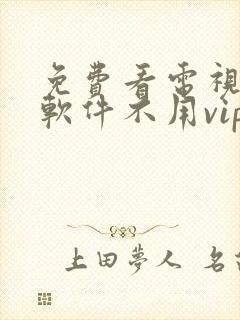 免費看電視
軟件不用vip
上田夢人 名